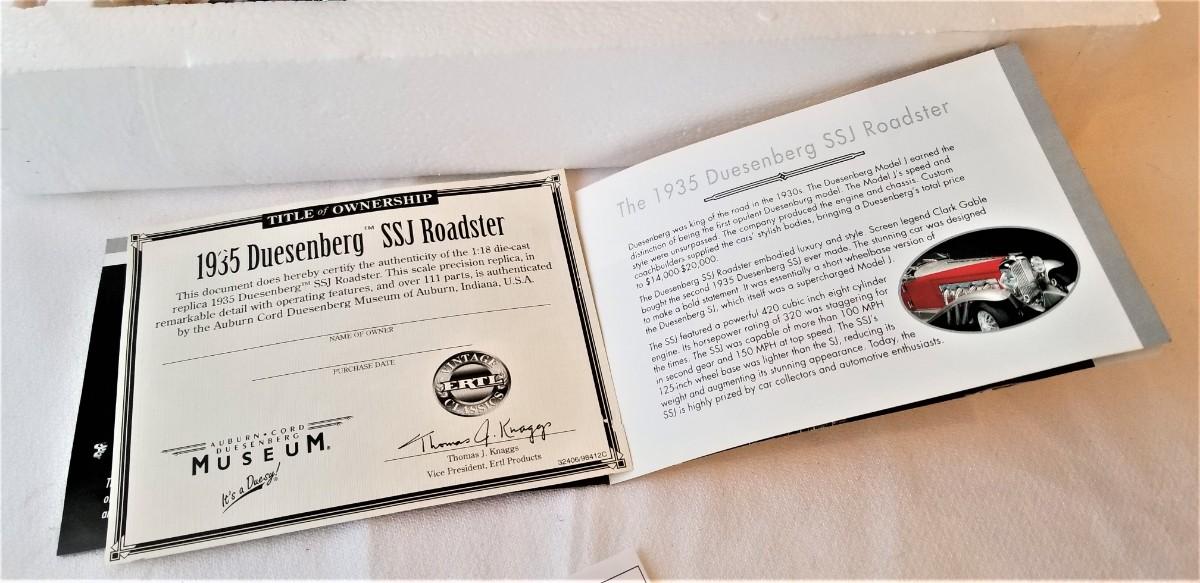 TITLE of OWNERSHIP
1935 Duesenberg™ SSJ Roadster
This document does hereby certify the authenticity of the 1:18 die-cast
replica 1935 Duesenberg™ SSJ Roadster. This scale precision replica, in
remarkable detail with operating features, and over 111 parts, is authenticated
by the Auburn Cord Duesenberg Museum of Auburn, Indiana, U.S.A.
NAME OF OWNER
PURCHASE DATE
VINTAGE
ERTL
CLASSICS
AUBURN • CORD
DUESENBERG
MUSEUM®
It's a Duesy!
Thomas J. Knaggs
Thomas J. Knaggs
Vice President, Ertl Products
32406/98412C
The 1935 Duesenberg SSJ Roadster
Duesenberg was king of the road in the 1930s. The Duesenberg Model J earned the
distinction of being the first opulent Duesenburg model. The Model J's speed and
style were unsurpassed. The company produced the engine and chassis. Custom
coachbuilders supplied the cars' stylish bodies, bringing a Duesenberg's total price
to $14,000-$20,000.
The Duesenberg SSJ Roadster embodied luxury and style. Screen legend Clark Gable
bought the second 1935 Duesenberg SSJ ever made. The stunning car was designed
to make a bold statement. It was essentially a short wheelbase version of
the Duesenberg SJ, which itself was a supercharged Model J.
The SSJ featured a powerful 420 cubic inch eight cylinder
engine. Its horsepower rating of 320 was staggering for
the times. The SSJ was capable of more than 100 MPH
in second gear and 150 MPH at top speed. The SSJ's
125-inch wheel base was lighter than the SJ, reducing its
weight and augmenting its stunning appearance. Today, the
SSJ is highly prized by car collectors and automotive enthusiasts.